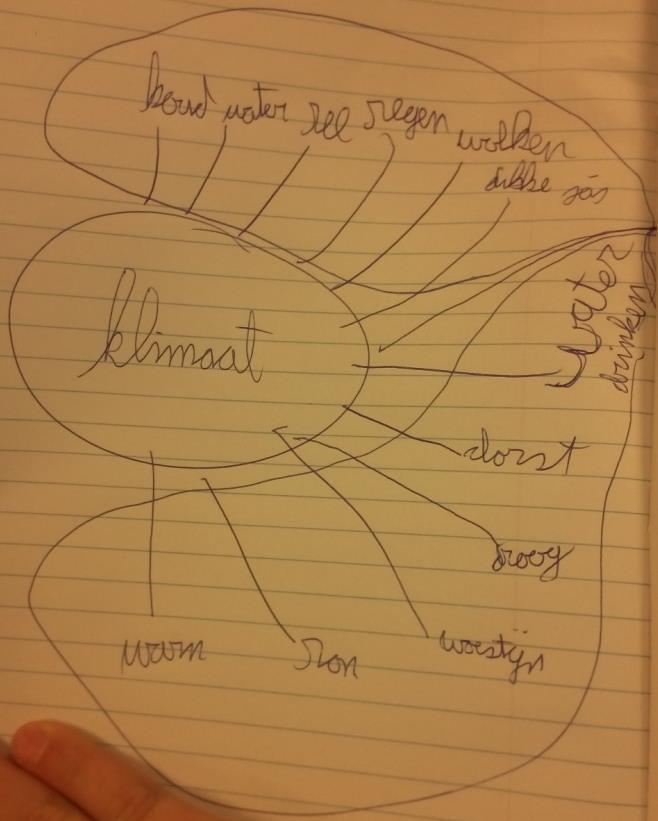 koud water zee regen wolken
dikke jas
klimaat
water
drinken
dorst
droog
woestijn
zon
warm